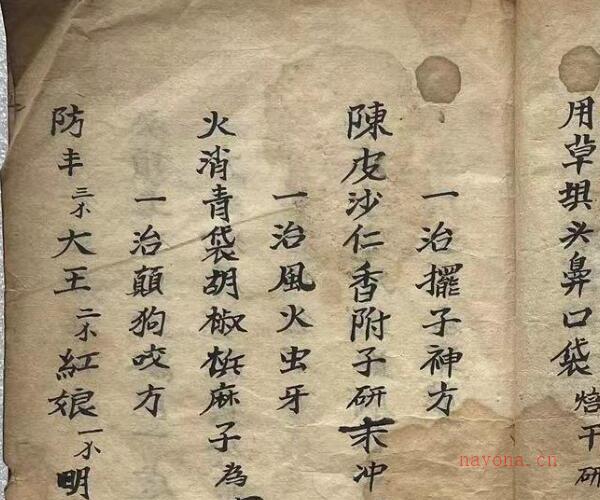 用草埧头鼻口袋焙干研
一治擺子神方
陳皮沙仁香附子研末冲
一治風火虫牙
火消青袋胡椒梹麻子為
一治顛狗咬方
防丰三个大王二个紅娘一个明
nayona.cn